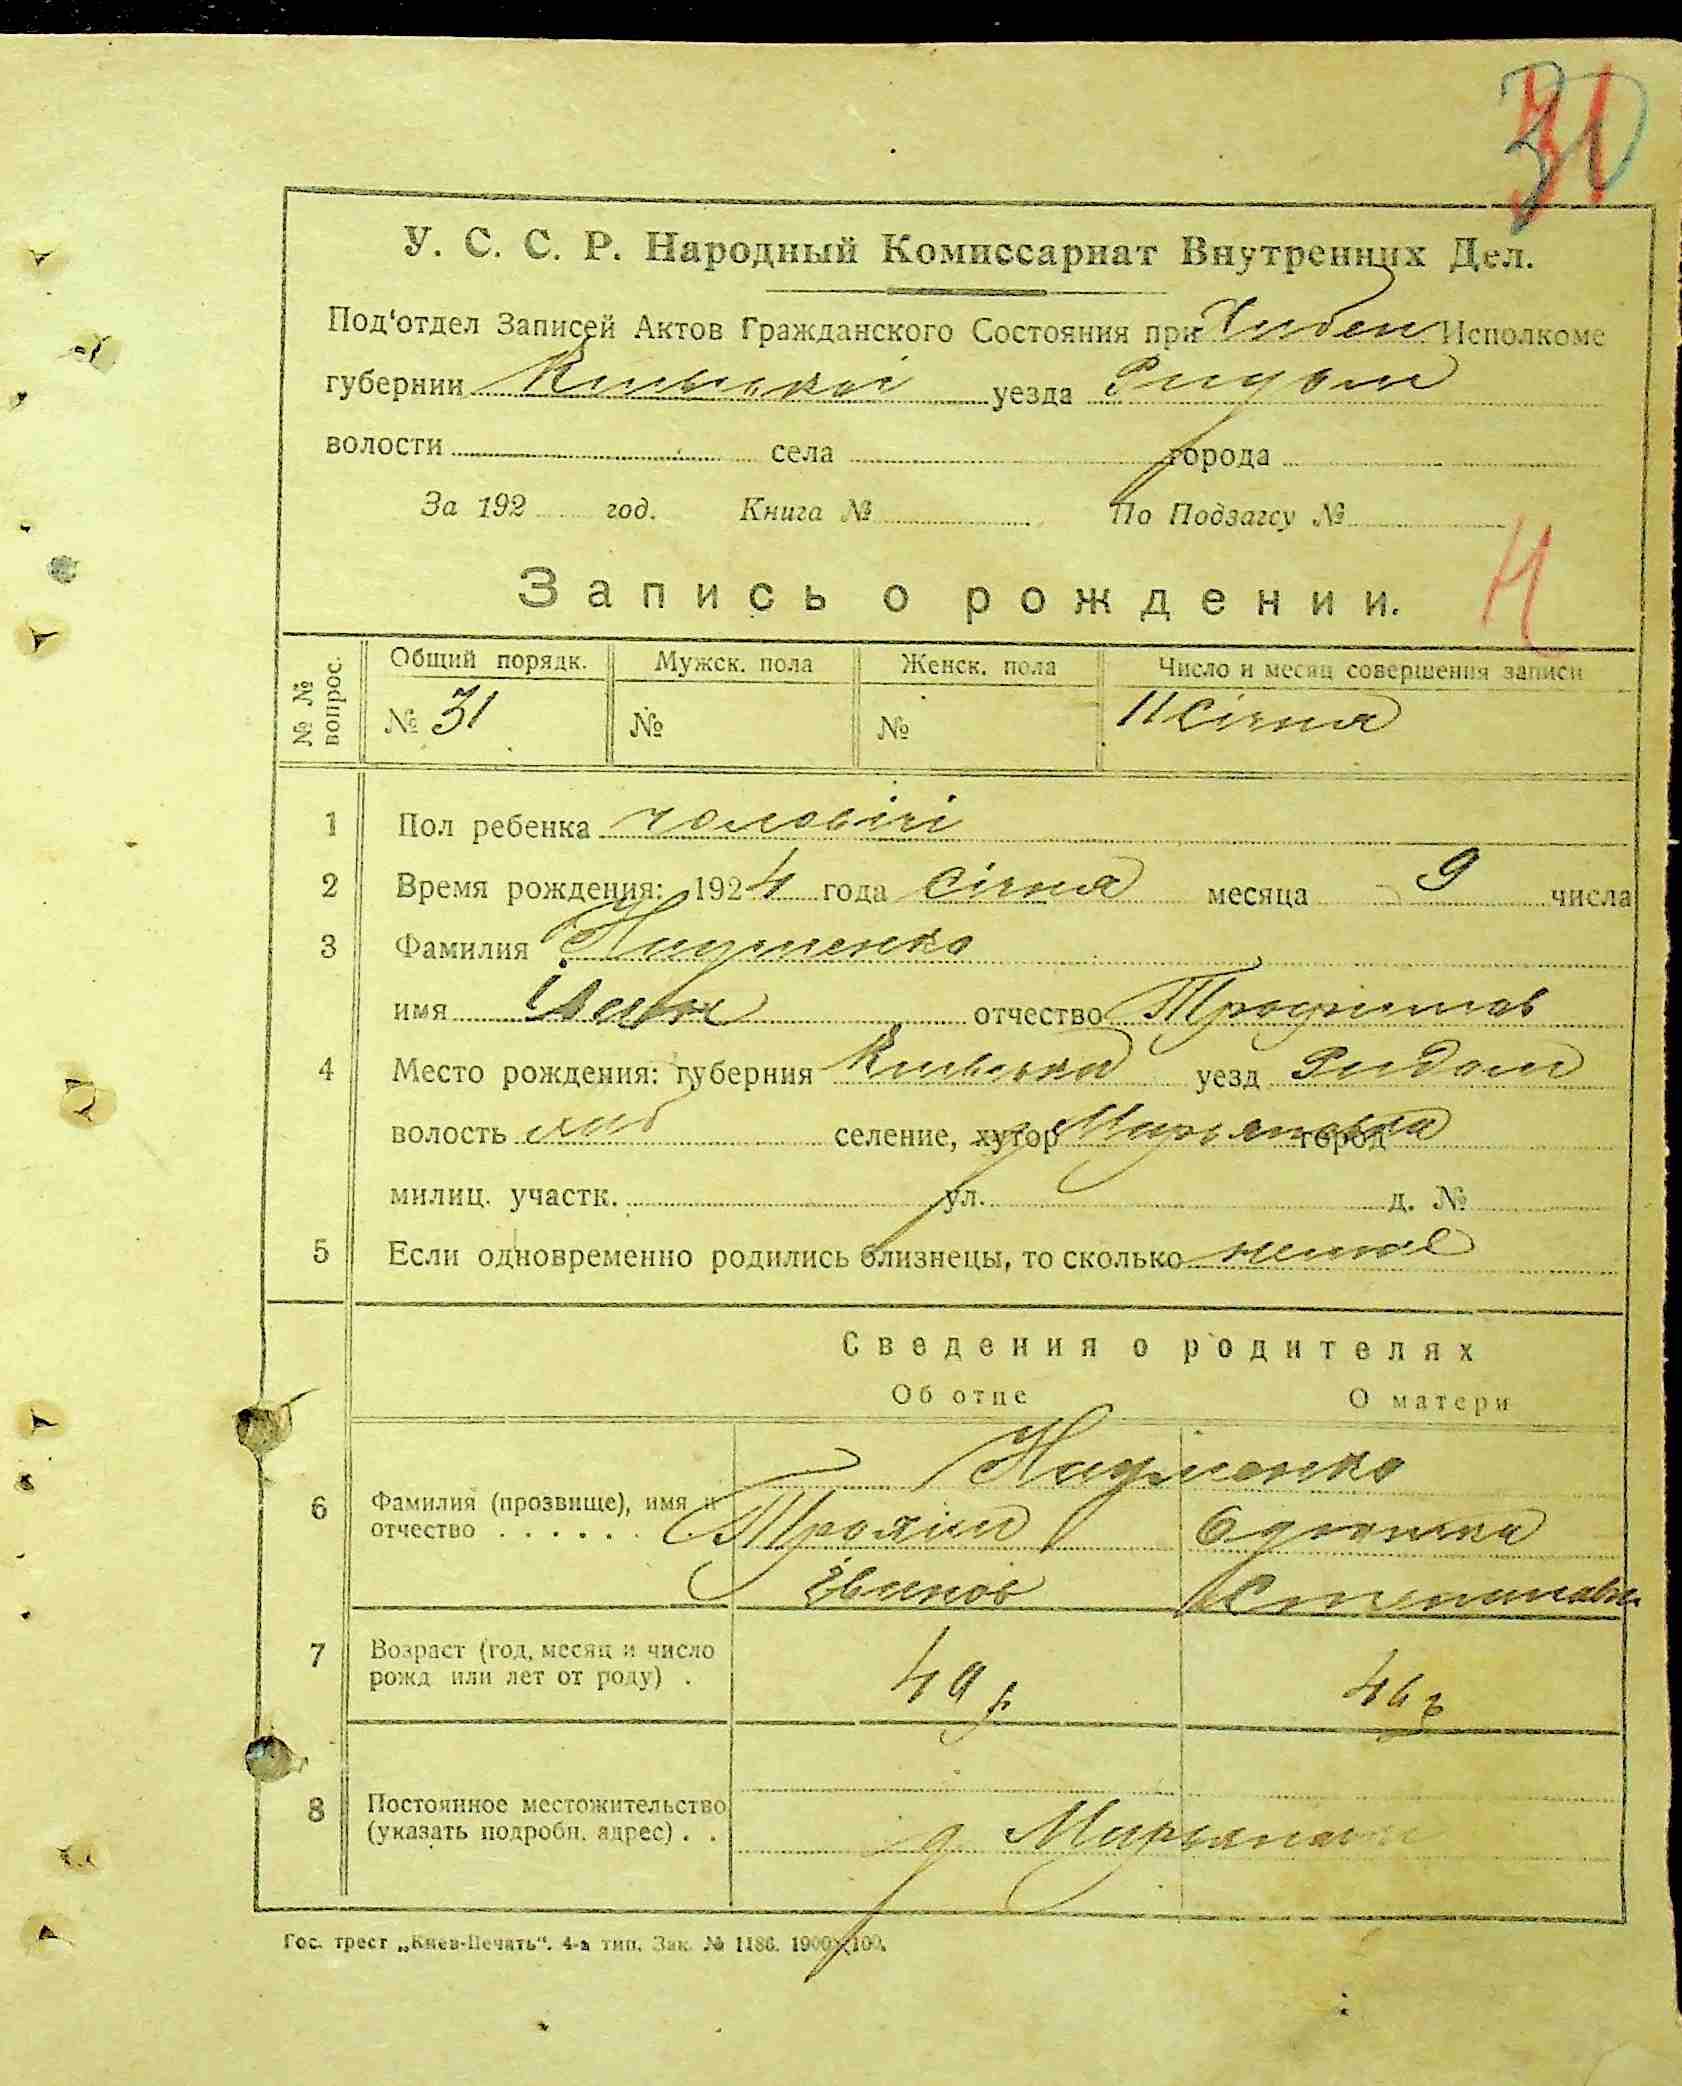 30
У. С. С. Р. Народный Комиссариат Внутренних Дел.
Под‘отдел Записей Актов Гражданского Состояния при Хибен Исполкоме
губернии Київської уезда Радом
волости села города
За 192 год. Книга № По Подзагсу №
Запись о рождении.
№ № вопрос. Общий порядк. Мужск. пола Женск. пола Число и месяц совершения записи
№ 31 № № 11 Січня
1 Пол ребенка чоловічі
2 Время рождения: 1924 года Січня месяца 9 числа
3 Фамилия Науменко
имя Іван отчество
4 Место рождения: губерния Київська уезд Радом
волость хаб селение, хутор Марьяновка город
милиц. участк. ул. д. №
5 Если одновременно родились близнецы, то сколько немає
Сведения о родителях
Об отце О матери
Науменко
6 Фамилия (прозвище), имя и
отчество . . . . . .
Степановн.
7 Возраст (год, месяц и число
рожд или лет от роду) . 49 р 46 р
8 Постоянное местожительство
(указать подробн. адрес) . .
Гос. трест „Киев-Печать“. 4-а тип. Зак. № 1186. 1900×100.